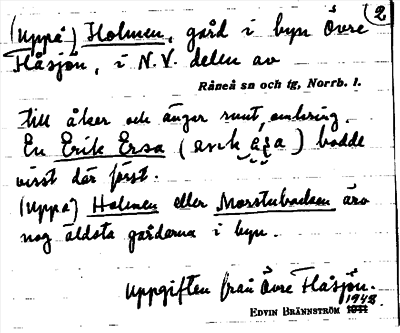 2
(uppå) Holmen, gård i byn Övre
Flåsjön, i N.V. delen av
Råneå sn och tg, Norrb. l.
till åker och ängar runt omkring.
En Erik Ersa (
) bodde
visst där först.
(uppå) Holmen eller Morstubacken äro
nog äldsta gårdarna i byn.
Uppgiften från Övre Flåsjön.
1948.
EDVIN BRÄNNSTRÖM 1944